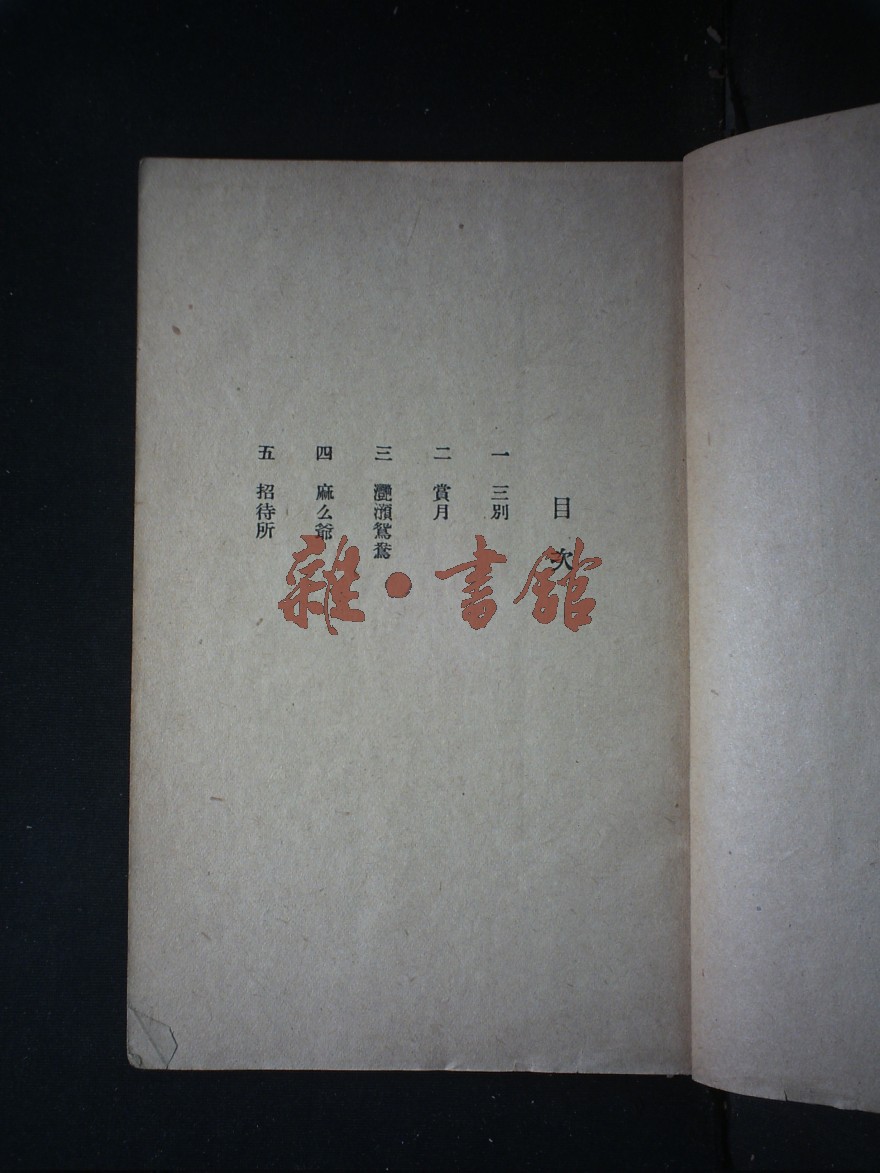 目次
一 三別
二 賞月
三 灔澦鴛鴦
四 麻么爺
五 招待所
雜·書館